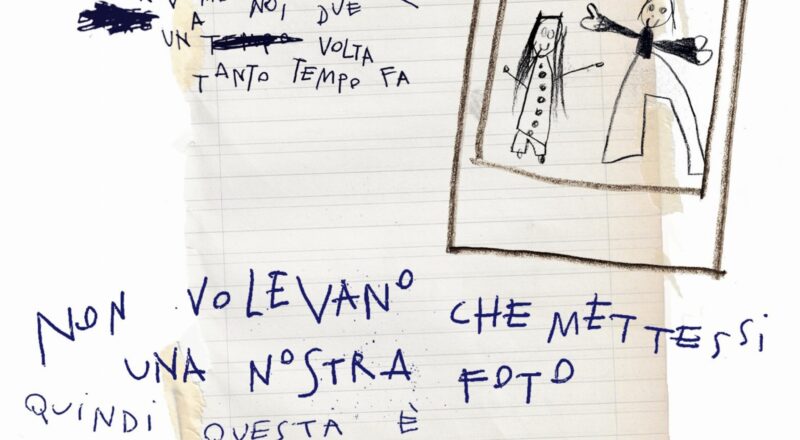 NOI DUE
A
UN VOLTA
TANTO TEMPO FA
NON VOLEVANO CHE METTESSI
UNA NOSTRA FOTO
QUINDI QUESTA È